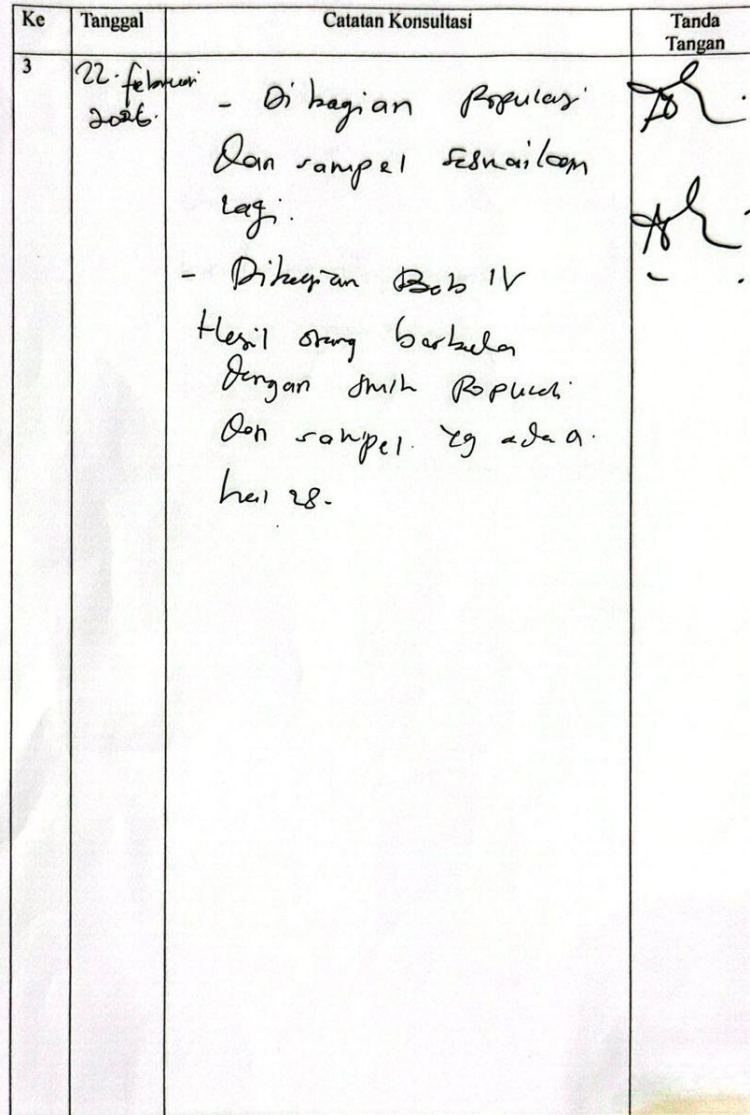 Ke Tanggal Catatan Konsultasi Tanda Tangan
3 22 februari 2026.
- Di bagian Populasi
dan sampel sesuaikan
lagi.
- Dibagian Bab IV
Hasil orang berbeda
dengan Populasi
dan sampel yg ada
hal 28.